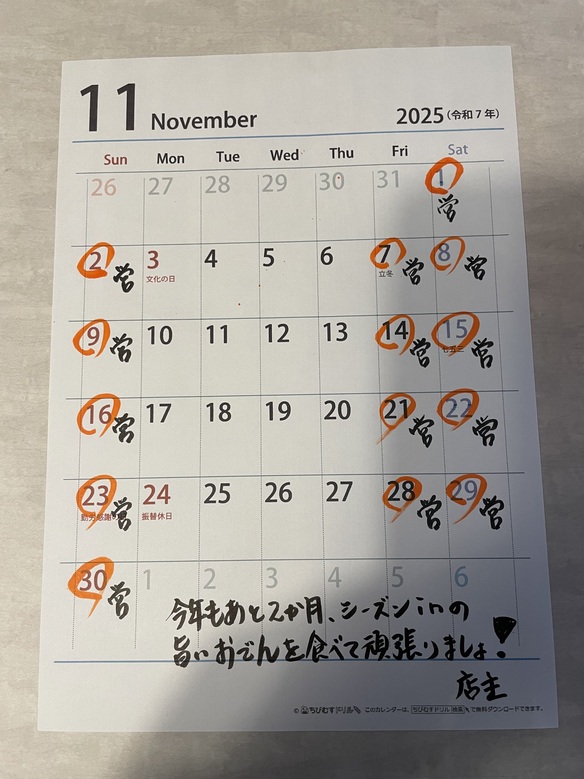 11 November 2025 (令和7年)
Sun Mon Tue Wed Thu Fri Sat
26 27 28 29 30 31 1
営
2 営 3 4 5 6 7 営 8 営
文化の日 立冬
9 営 10 11 12 13 14 営 15 営
七五三
16 営 17 18 19 20 21 営 22 営
23 営 24 25 26 27 28 営 29 営
勤労感謝の 振替休日
30 営 1 2 3 4 5 6
今年もあと2か月、シーズンinの
旨いおでんを食べて頑張りましょ!
店主
© ちびむすドリル このカレンダーは、ちびむすドリル 検索 で無料ダウンロードできます。